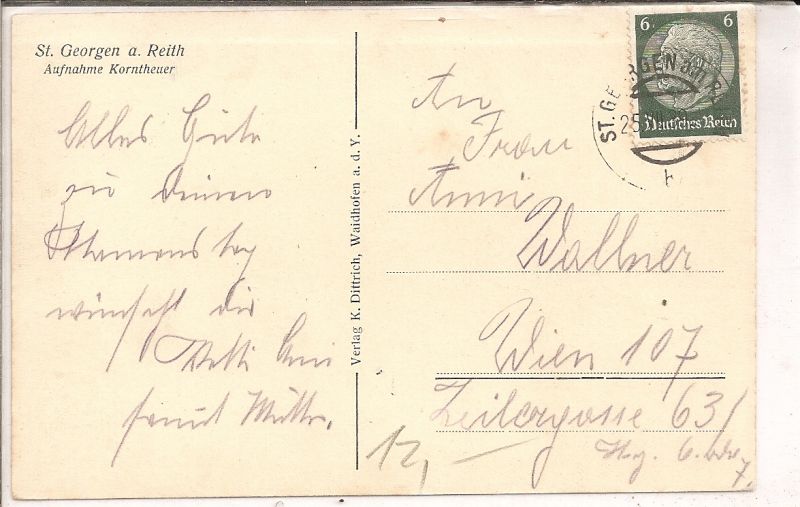 St. Georgen a. Reith
Aufnahme Korntheuer
Alles Gute
zu Deinem
Namenstag
wünscht dir
samt Mutter.
Verlag K. Dittrich, Waidhofen a. d. Y.
6 6
Deutsches Reich
ST. GEORGEN a.
25
An
Frau
Anni
Wallner
Wien 107
Zeilergasse 63/
7.
12,